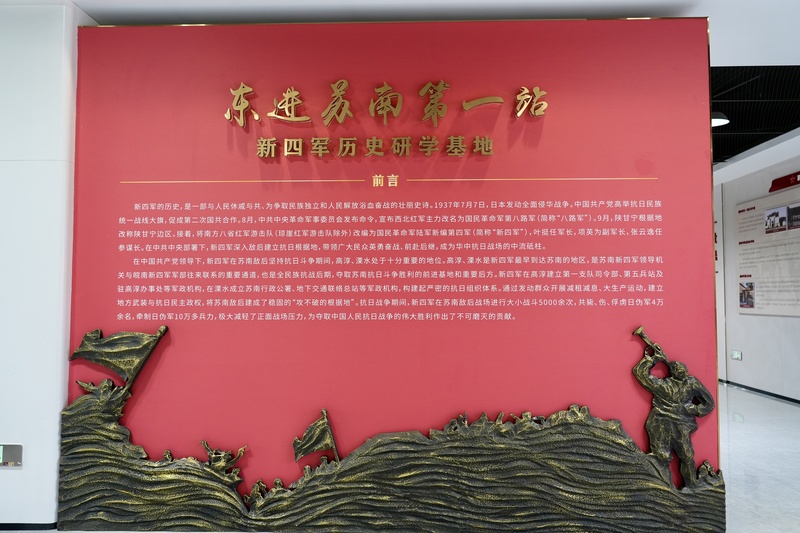 东进苏南第一站
新四军历史研学基地
前言
新四军的历史，是一部与人民休戚与共、为争取民族独立和人民解放浴血奋战的壮丽史诗。1937年7月7日，日本发动全面侵华战争。中国共产党高举抗日民族
统一战线大旗，促成第二次国共合作。8月，中共中央革命军事委员会发布命令，宣布西北红军主力改名为国民革命军第八路军（简称“八路军”）。9月，陕甘宁根据地
改称陕甘宁边区。接着，将南方八省红军游击队（琼崖红军游击队除外）改编为国民革命军陆军新编第四军（简称“新四军”），叶挺任军长，项英为副军长，张云逸任
参谋长。在中共中央部署下，新四军深入敌后建立抗日根据地，带领广大民众英勇奋战、前赴后继，成为华中抗日战场的中流砥柱。
在中国共产党领导下，新四军在苏南敌后坚持抗日斗争期间，高淳、溧水处于十分重要的地位。高淳、溧水是新四军最早到达苏南的地区，是苏南新四军领导机
关与皖南新四军军部往来联系的重要通道，也是全民族抗战后期，夺取苏南抗日斗争胜利的前进基地和重要后方。新四军在高淳建立第一支队司令部、第五兵站及
驻高淳办事处等军政机构，在溧水成立苏南行政公署、地下交通联络总站等军政机构，构建起严密的抗日组织体系。通过发动群众开展减租减息、大生产运动，建立
地方武装与抗日民主政权，将苏南敌后建成了稳固的“攻不破的根据地”。抗日战争期间，新四军在苏南敌后战场进行大小战斗5000余次，共毙、伤、俘虏日伪军4万
余名，牵制日伪军10万多兵力，极大减轻了正面战场压力，为夺取中国人民抗日战争的伟大胜利作出了不可磨灭的贡献。